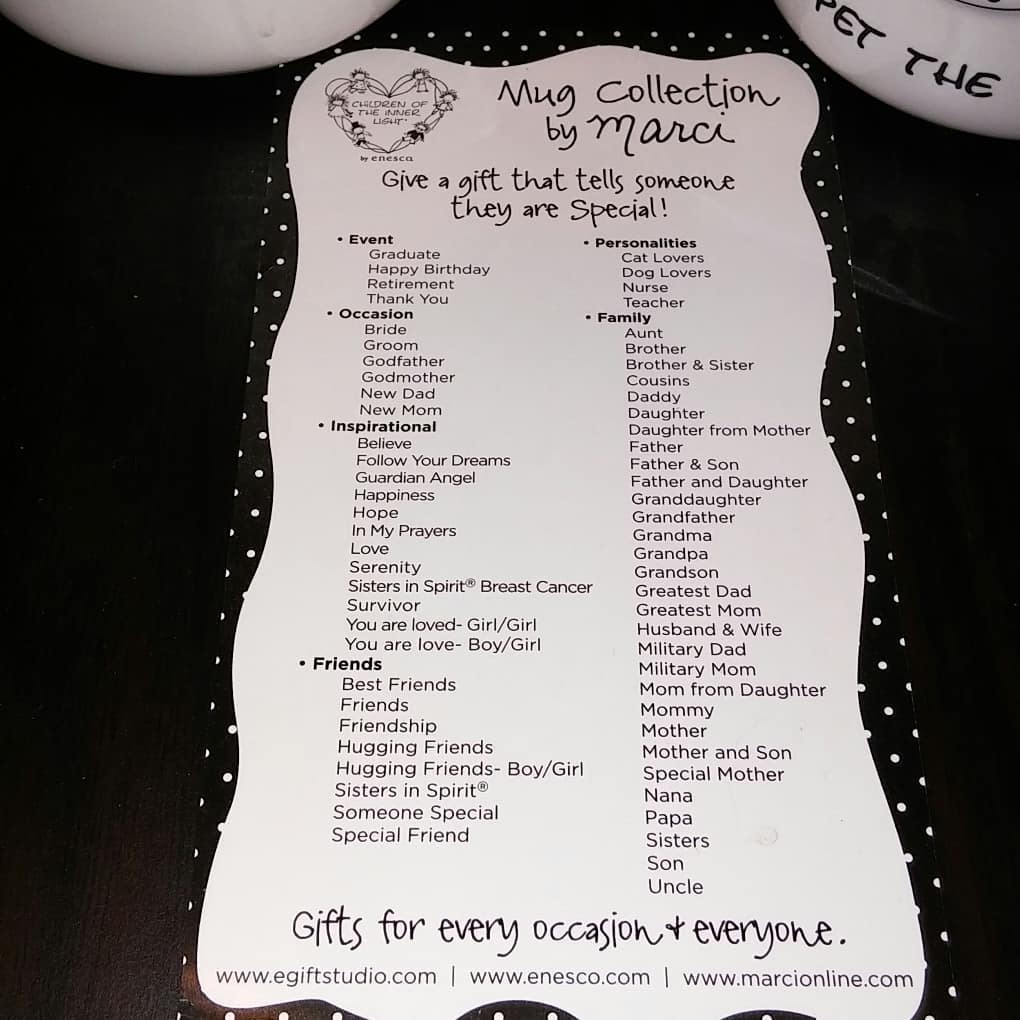 CHILDREN OF
THE INNER
LIGHT®
by enesco
Mug Collection
by Marci
Give a gift that tells someone
they are Special!
• Event
Graduate
Happy Birthday
Retirement
Thank You
• Occasion
Bride
Groom
Godfather
Godmother
New Dad
New Mom
• Inspirational
Believe
Follow Your Dreams
Guardian Angel
Happiness
Hope
In My Prayers
Love
Serenity
Sisters in Spirit® Breast Cancer
Survivor
You are loved- Girl/Girl
You are love- Boy/Girl
• Friends
Best Friends
Friends
Friendship
Hugging Friends
Hugging Friends- Boy/Girl
Sisters in Spirit®
Someone Special
Special Friend
• Personalities
Cat Lovers
Dog Lovers
Nurse
Teacher
• Family
Aunt
Brother
Brother & Sister
Cousins
Daddy
Daughter
Daughter from Mother
Father
Father & Son
Father and Daughter
Granddaughter
Grandfather
Grandma
Grandpa
Grandson
Greatest Dad
Greatest Mom
Husband & Wife
Military Dad
Military Mom
Mom from Daughter
Mommy
Mother
Mother and Son
Special Mother
Nana
Papa
Sisters
Son
Uncle
Gifts for every occasion + everyone.
www.egiftstudio.com | www.enesco.com | www.marcionline.com
PET THE